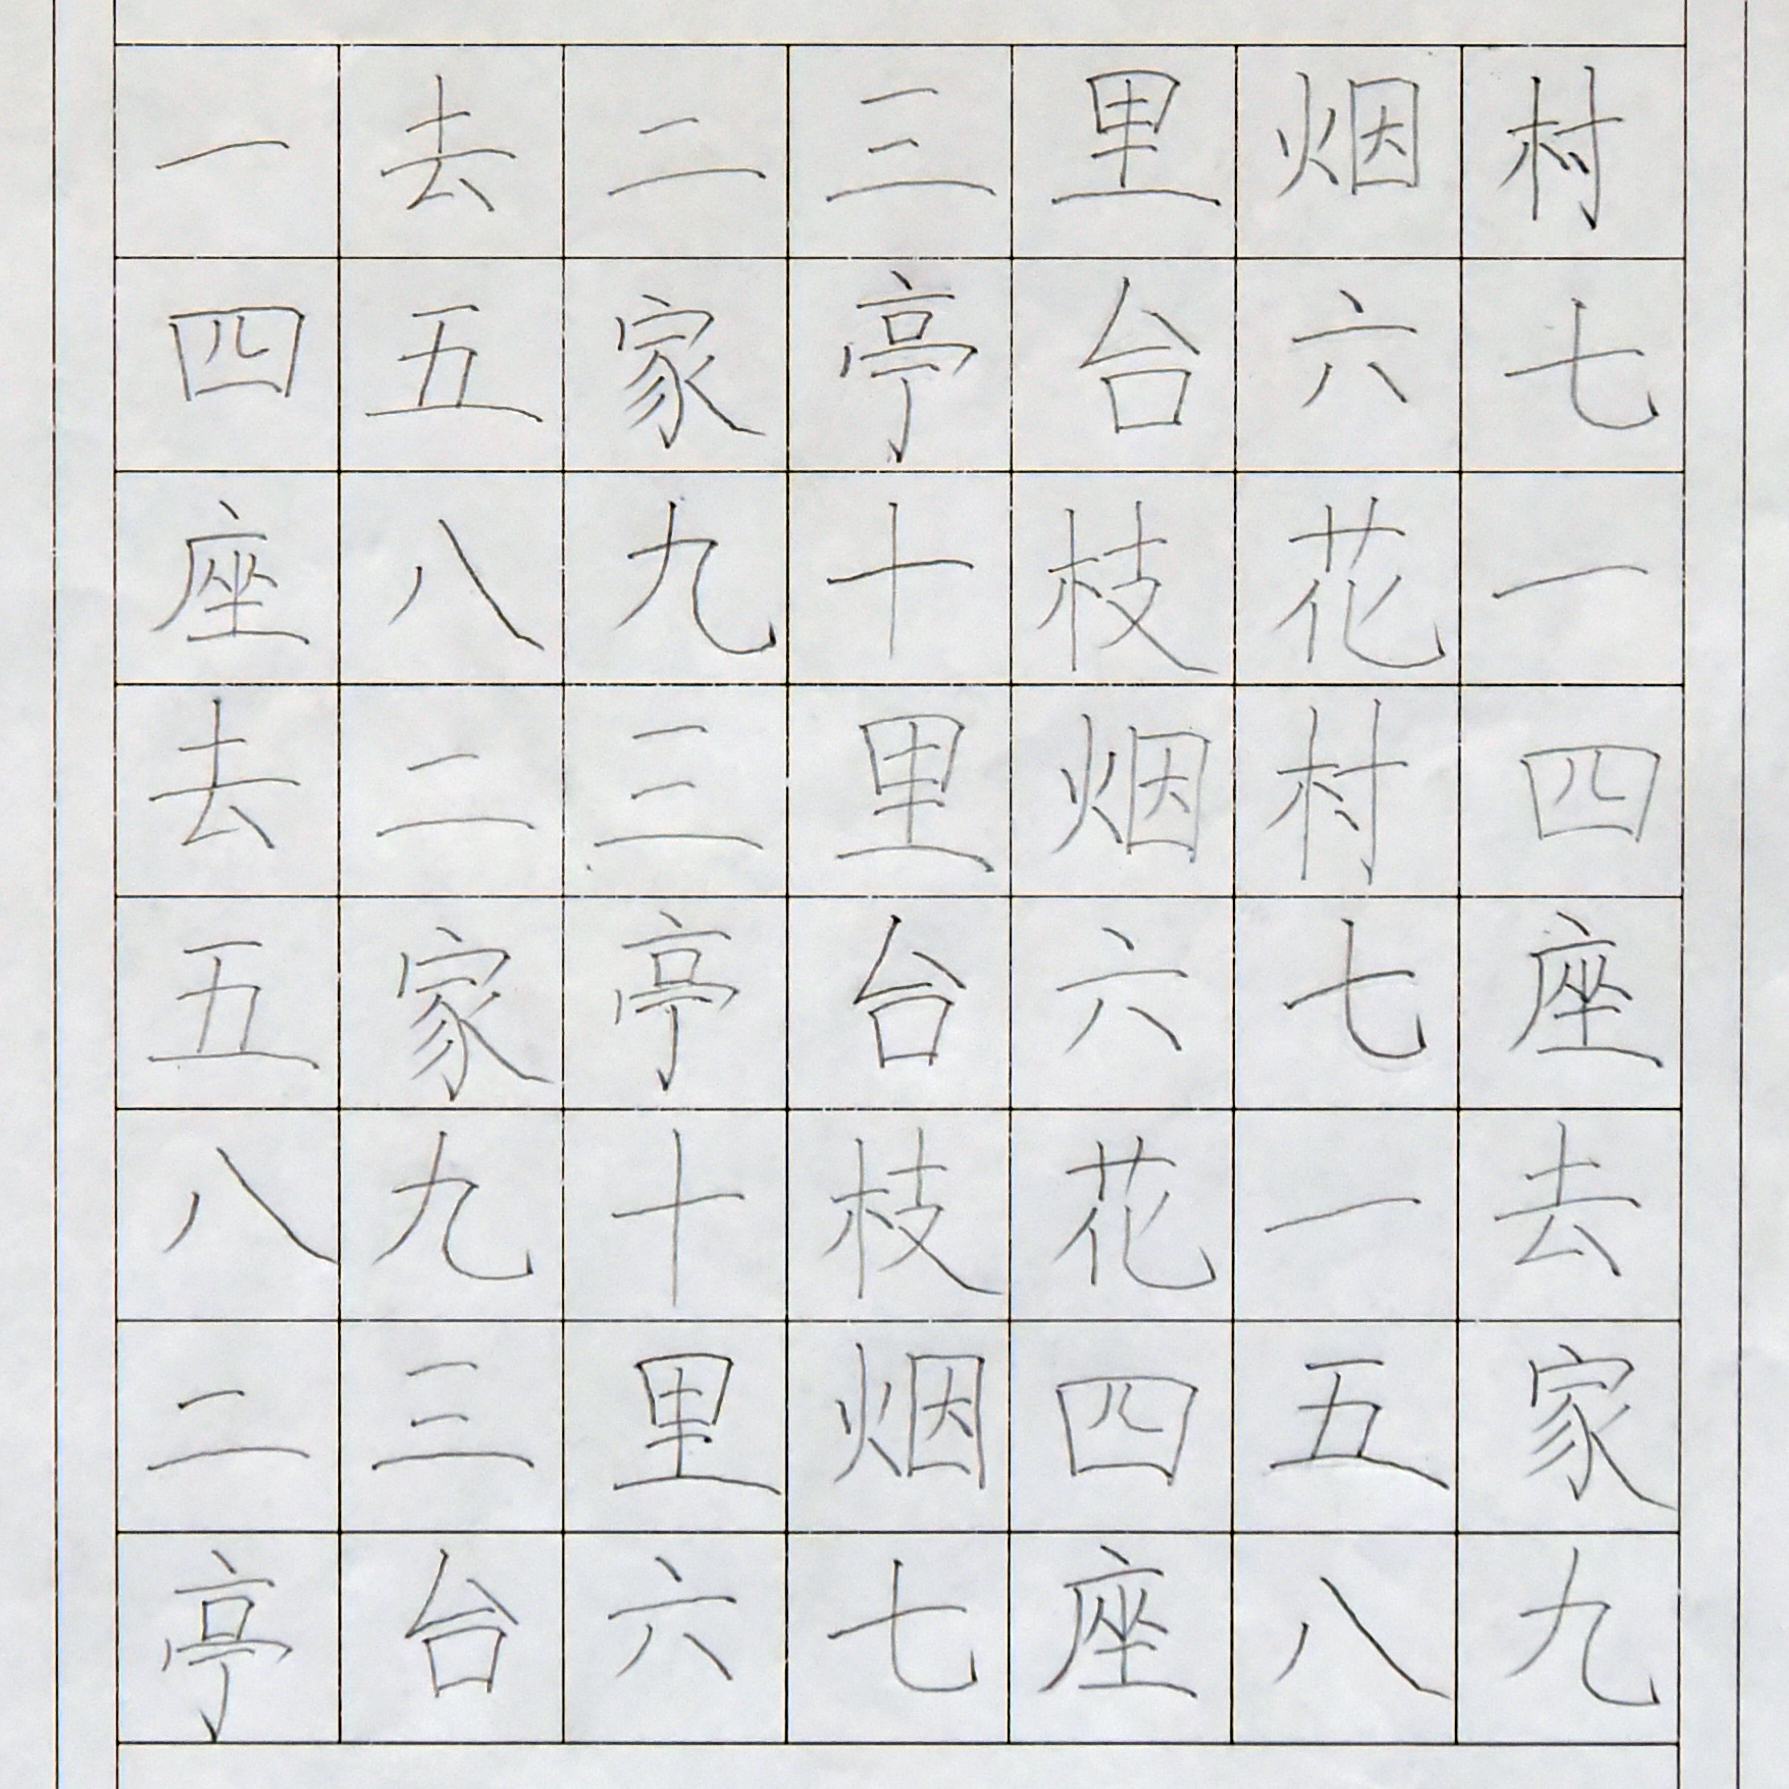 一去二三里烟村
四五家亭台六七
座八九十枝花一
去二三里烟村四
五家亭台六七座
八九十枝花一去
二三里烟四五家
亭台六七座八九